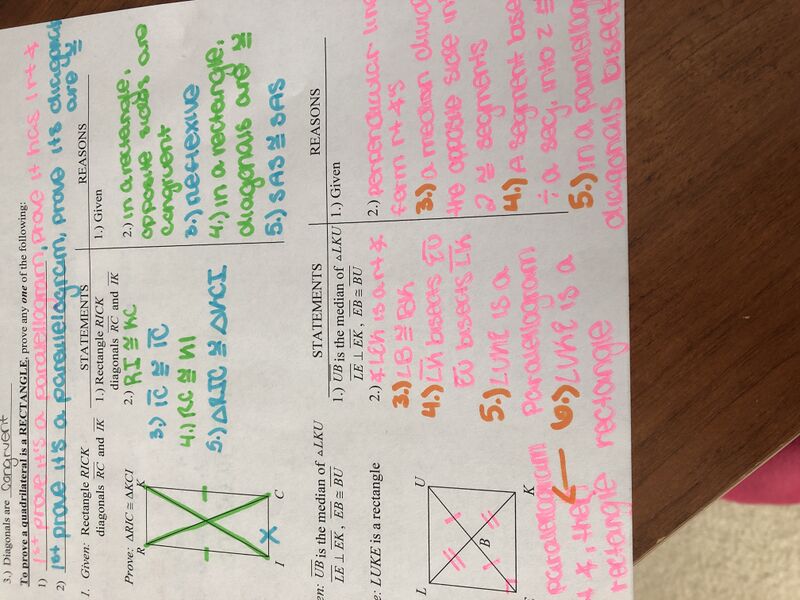 3.) Diagonals are Congruent
To prove a quadrilateral is a RECTANGLE, prove any one of the following:
1) 1st prove it's a parallelogram, prove it has 1 rt ∡
2) 1st prove it's a parallelogram, prove its diagonals are ≅
1. Given: Rectangle RICK
diagonals RC and IK
Prove: △RIC ≅ △KCI
R
K
I
C
X
STATEMENTS
REASONS
1.) Rectangle RICK
diagonals RC and IK
1.) Given
2.) RI ≅ KC
2.) in a rectangle,
opposite sides are
congruent
3.) IC ≅ IC
3.) Reflexive
4.) RC ≅ KI
4.) in a rectangle,
diagonals are ≅
5.) △RIC ≅ △KCI
5.) SAS ≅ SAS
en: UB is the median of △LKU
LE ⊥ EK, EB ≅ BU
e: LUKE is a rectangle
L
U
B
K
STATEMENTS
REASONS
1.) UB is the median of △LKU
LE ⊥ EK, EB ≅ BU
1.) Given
2.) ∡LEK is a rt ∡
2.) perpendicular
form rt ∡s
3.) LB ≅ BK
3.) a median
the opposite side in
2 ≅ segments
4.) LK bisects EU
EU bisects LK
4.) A segment
÷ a seg. into 2 ≅
5.) LUKE is a
parallelogram
5.) in a
diagonals bisect
6.) LUKE is a
rectangle
parallelogram
rectangle